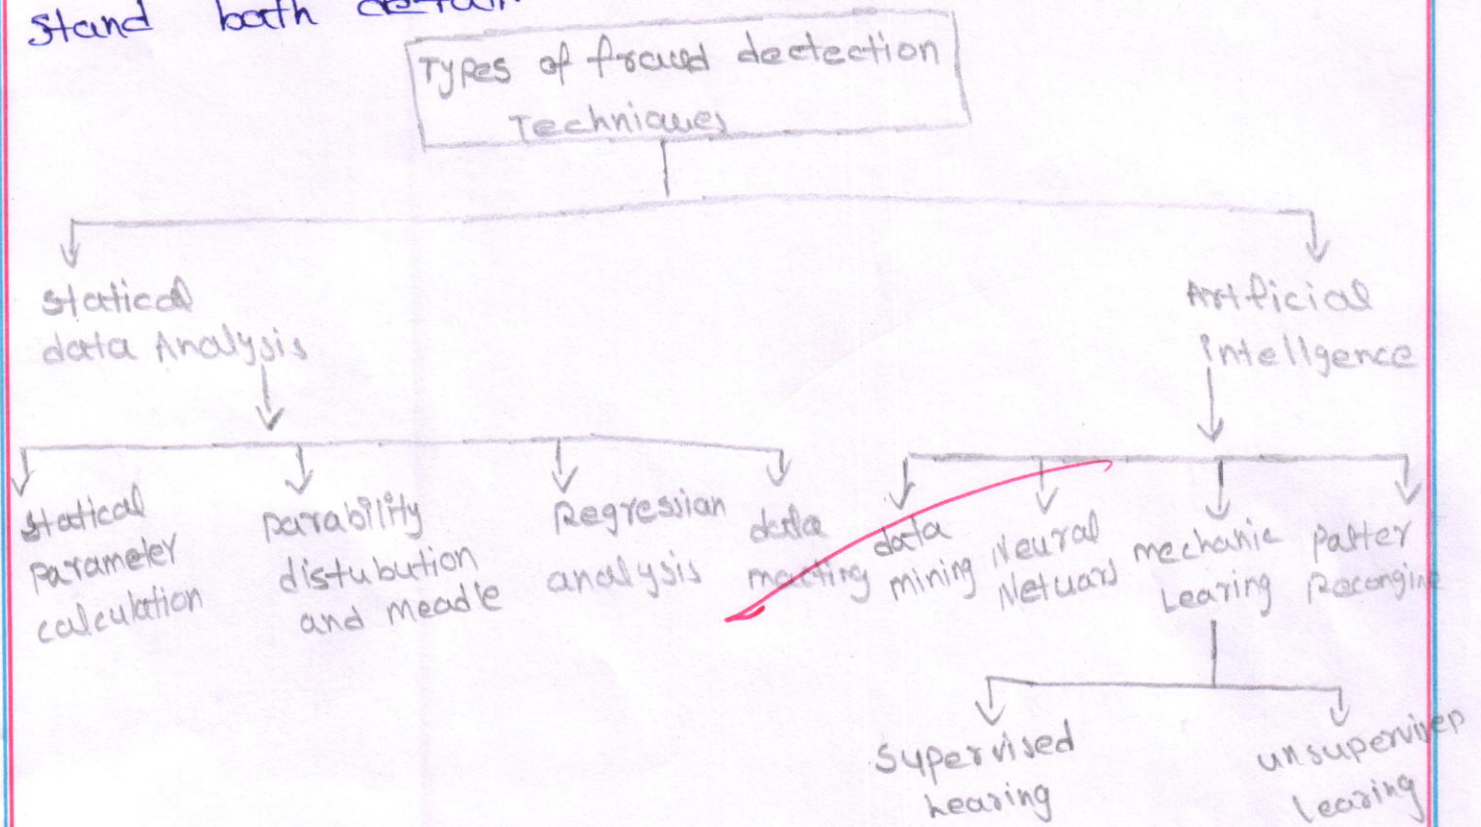 stand both
Types of fraud dectection
Techniques
statical
data Analysis
Artficial
intellgence
statical
parameter
calculation
parability
distubution
and meadle
Regression
analysis
data
macting
data
mining
Neural
Netuars
mechanic
Learing
Patter
Racongine
Supervised
hearing
unsupervised
learing